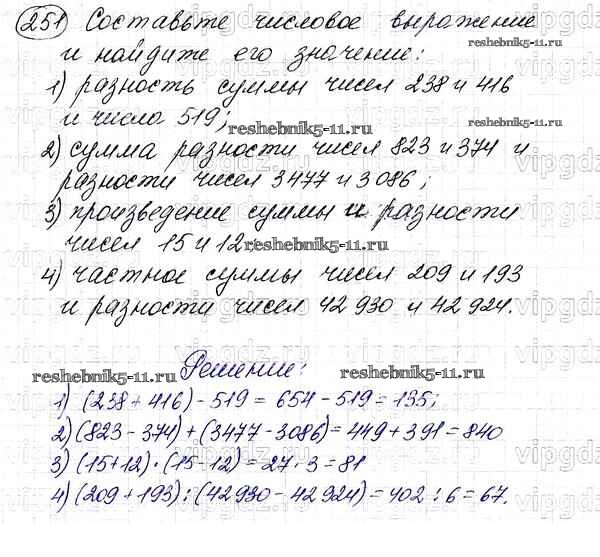 251 Составьте числовое выражение
и найдите его значение:
1) разность суммы чисел 238 и 416
и числа 519;
2) сумма разности чисел 823 и 374 и
разности чисел 3477 и 3086;
3) произведение суммы и разности
чисел 15 и 12
4) частное суммы чисел 209 и 193
и разности чисел 42 930 и 42 924.
Решение:
1) (238 + 416) - 519 = 654 - 519 = 135;
2) (823 - 374) + (3477 - 3086) = 449 + 391 = 840
3) (15 + 12) · (15 - 12) = 27 · 3 = 81
4) (209 + 193) : (42930 - 42924) = 402 : 6 = 67.
reshebnik5-11.ru
reshebnik5-11.ru
reshebnik5-11.ru
reshebnik5-11.ru
reshebnik5-11.ru
reshebnik5-11.ru
reshebnik5-11.ru